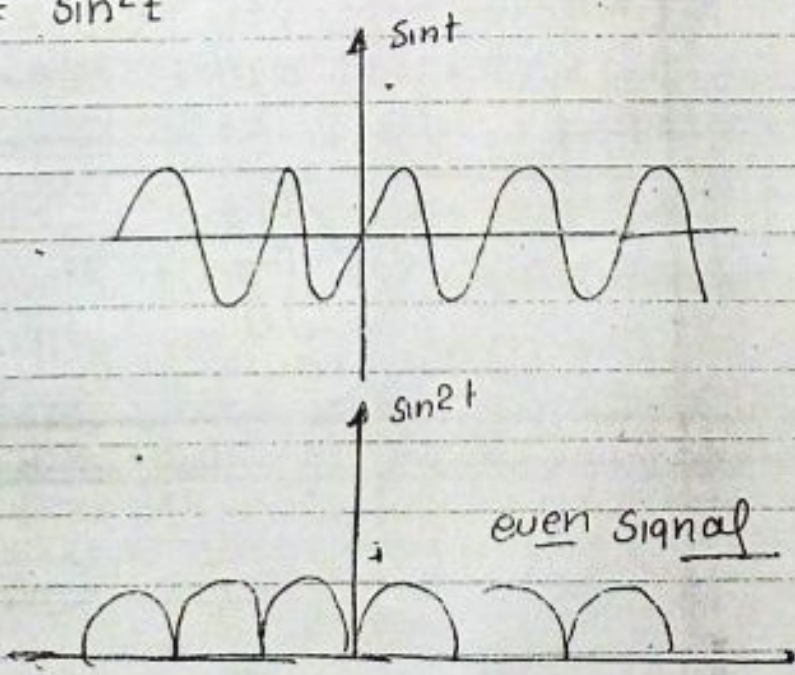 = Sin²t
Sint
Sin²t
even Signal